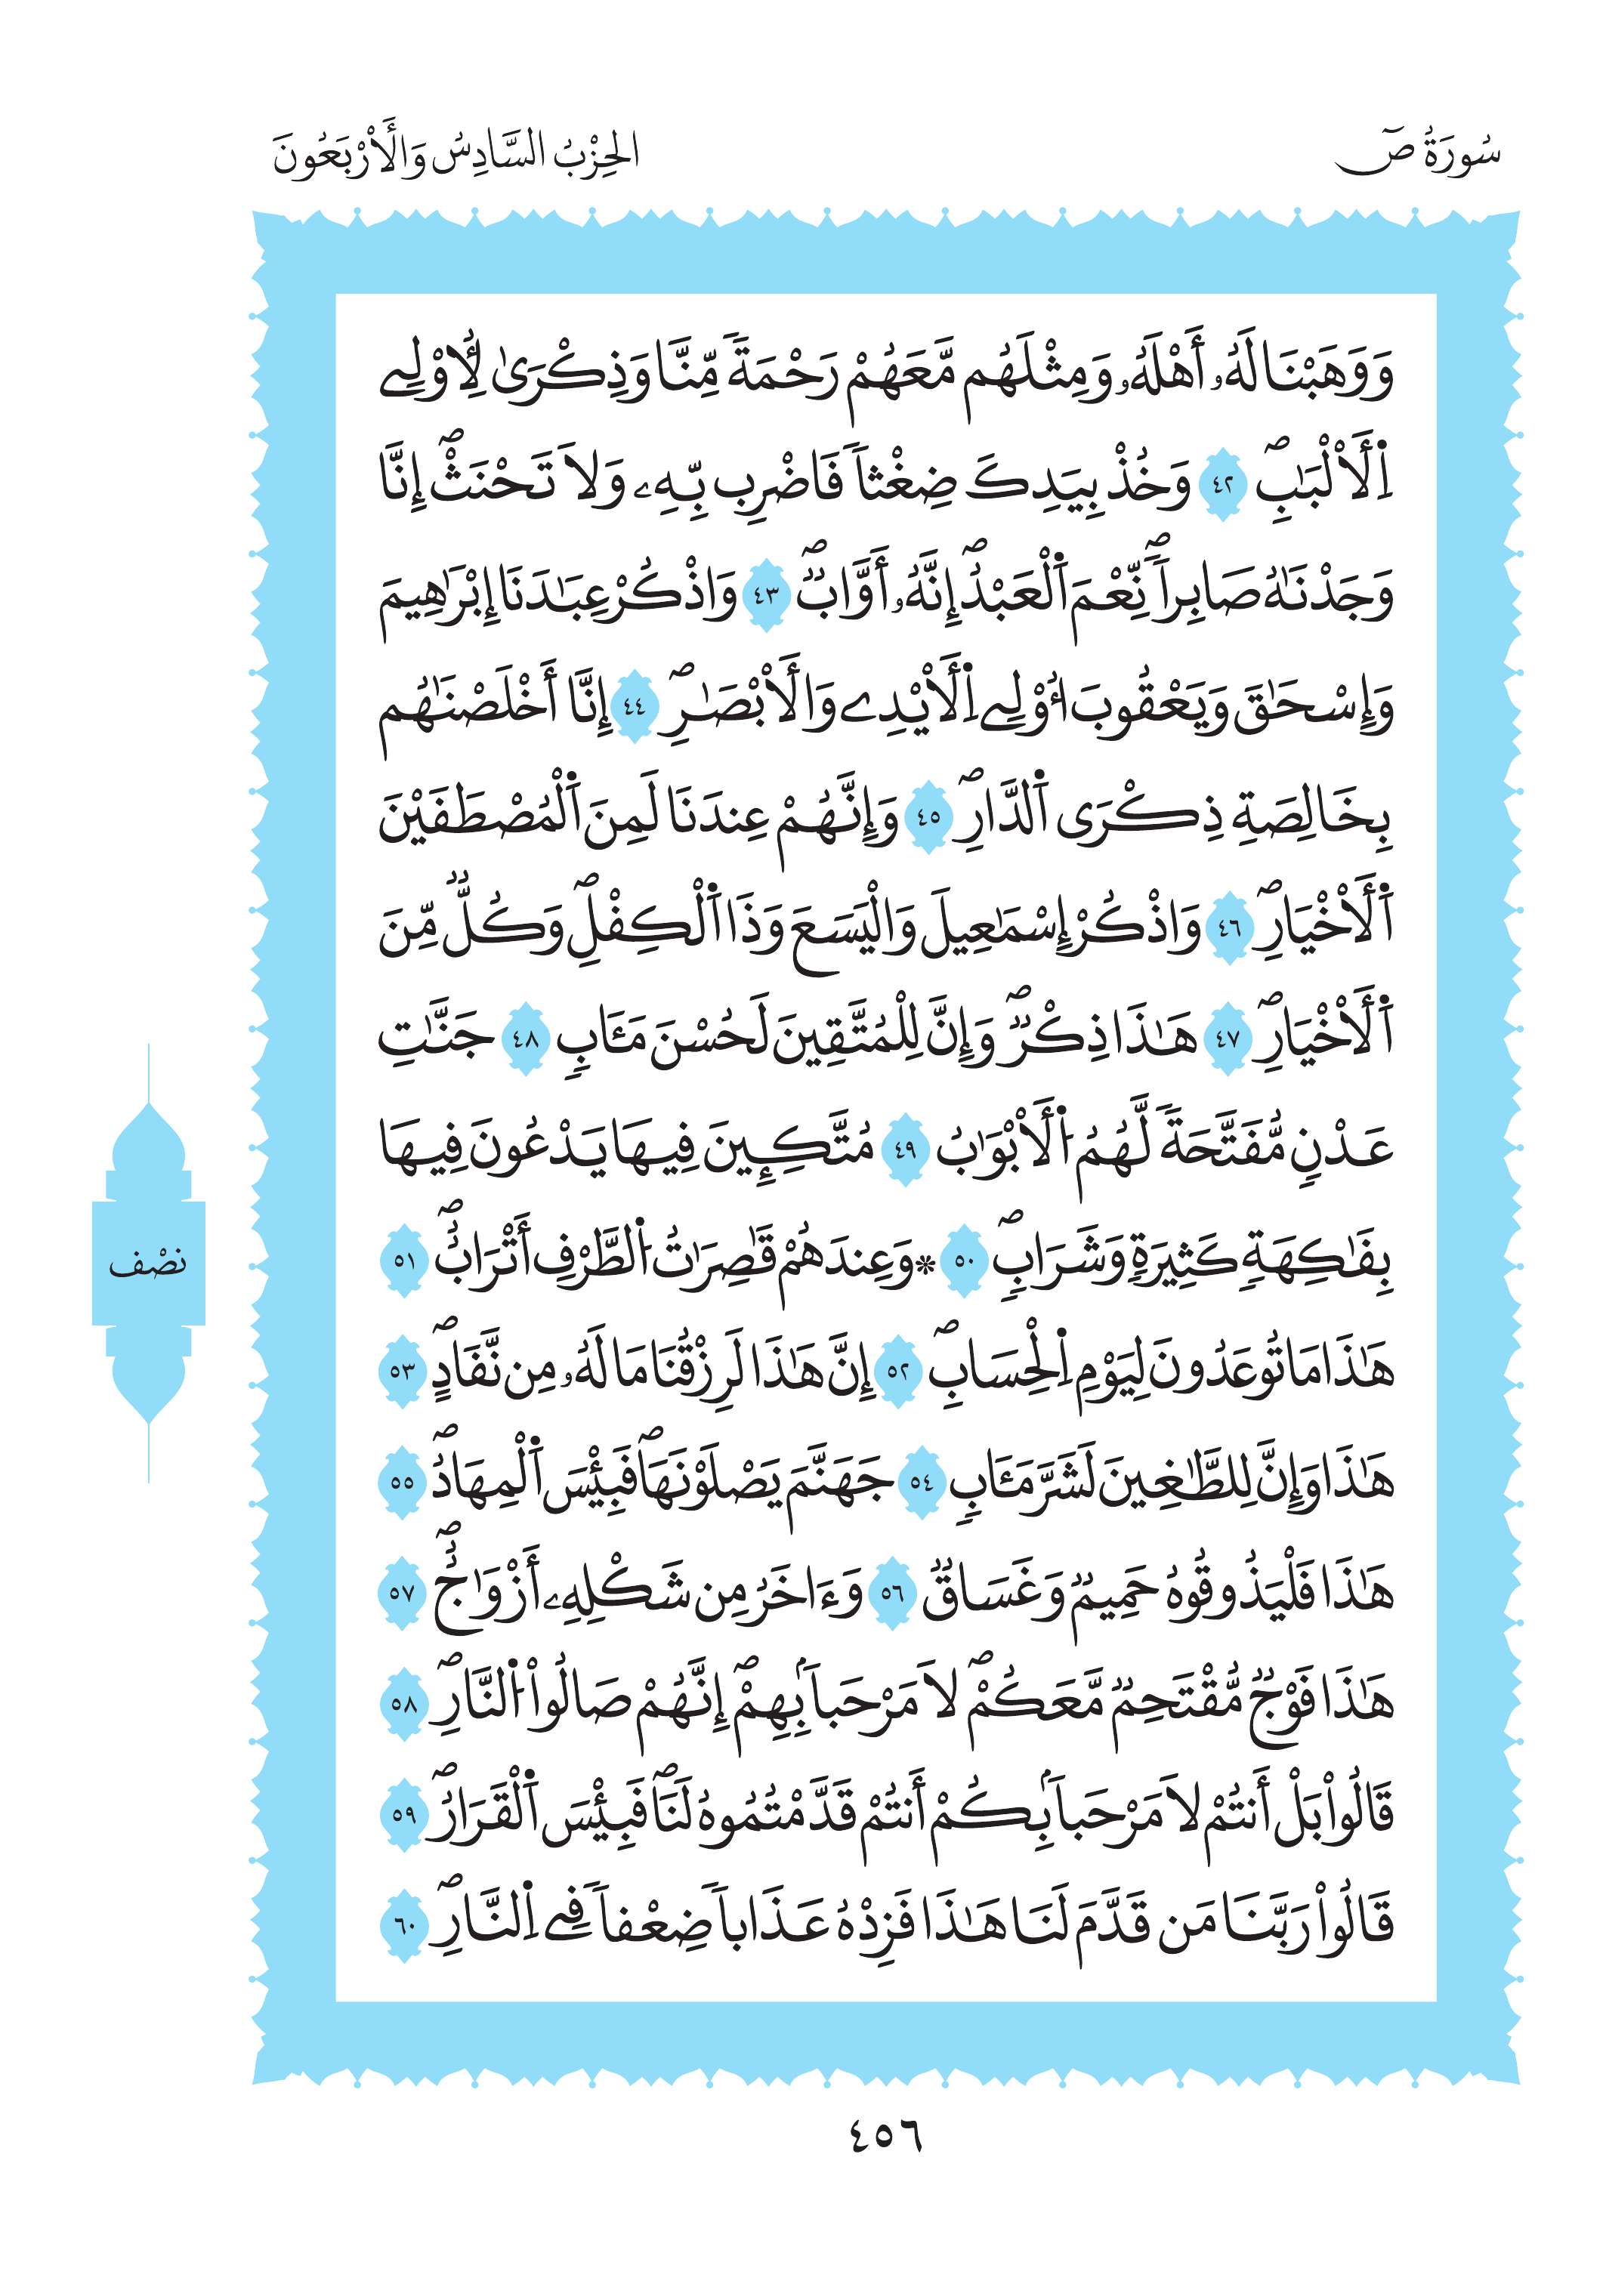 سُورَةُ صٓ
الحِزْبُ السَّادِسُ وَالَأرْبَعُونَ
وَوَهَبْنَا لَهُۥ أَهْلَهُۥ وَمِثْلَهُم مَّعَهُمْ رَحْمَةٗ مِّنَّا وَذِكْرَىٰ لِأُوْلِے
اِ۬لَالْبَٰبِۖ ٤٢ وَخُذْ بِيَدِكَ ضِغْثاٗ فَاضْرِب بِّهِۦ وَلَا تَحْنَثْۖ إِنَّا
وَجَدْنَٰهُ صَابِراٗۖ نِّعْمَ اَ۬لْعَبْدُۖ إِنَّهُۥ أَوَّابٞۖ ٤٣ وَاذْكُرْ عِبَٰدَنَا إِبْرَٰهِيمَ
وَإِسْحَٰقَ وَيَعْقُوبَ أُوْلِے اِ۬لَايْدِے وَالَابْصٰ۪رِۖ ٤٤ إِنَّا أَخْلَصْنَٰهُم
بِخَالِصَةِ ذِكْرَى اَ۬لدّ۪ارِۖ ٤٥ وَإِنَّهُمْ عِندَنَا لَمِنَ اَ۬لْمُصْطَفَيْنَ
اَ۬لَاخْي۪ارِۖ ٤٦ وَاذْكُرْ إِسْمَٰعِيلَ وَالْيَسَعَ وَذَا اَ۬لْكِفْلِۖ وَكُلّٞ مِّنَ
اَ۬لَاخْي۪ارِۖ ٤٧ هَٰذَا ذِكْرٞۖ وَإِنَّ لِلْمُتَّقِينَ لَحُسْنَ مَـَٔابٖ ٤٨ جَنَّٰتِ
عَدْنٖ مُّفَتَّحَةٗ لَّهُمُ اُ۬لَابْوَٰبُ ٤٩ مُتَّكِـِٕينَ فِيهَا يَدْعُونَ فِيهَا
بِفَٰكِهَةٖ كَثِيرَةٖ وَشَرَابٖۖ ٥٠ ۞ وَعِندَهُمْ قَٰصِرَٰتُ اُ۬لطَّرْفِ أَتْرَابٌۖ ٥١
هَٰذَا مَا تُوعَدُونَ لِيَوْمِ اِ۬لْحِسَابِۖ ٥٢ إِنَّ هَٰذَا لَرِزْقُنَا مَا لَهُۥ مِن نَّفَادٍۖ ٥٣
هَٰذَا وَإِنَّ لِلطَّٰغِينَ لَشَرَّ مَـَٔابٖ ٥٤ جَهَنَّمَ يَصْلَوْنَهَاۖ فَبِئْسَ اَ۬لْمِهَادُۖ ٥٥
هَٰذَا فَلْيَذُوقُوهُ حَمِيمٞ وَغَسَاقٞ ٥٦ وَءَاخَرُ مِن شَكْلِهِۦ أَزْوَٰجٌۖ ٥٧
هَٰذَا فَوْجٞ مُّقْتَحِمٞ مَّعَكُمْۖ لَا مَرْحَباَۢ بِهِمْۖ إِنَّهُمْ صَالُواْ اُ۬لنّ۪ارِۖ ٥٨
قَالُواْ بَلْ أَنتُمْ لَا مَرْحَباَۢ بِكُمْ أَنتُمْ قَدَّمْتُمُوهُ لَنَاۖ فَبِئْسَ اَ۬لْقَرَارُۖ ٥٩
قَالُواْ رَبَّنَا مَن قَدَّمَ لَنَا هَٰذَا فَزِدْهُ عَذَاباٗ ضِعْفاٗ فِے اِ۬لنّ۪ارِۖ ٦٠
نصْف
٤٥٦